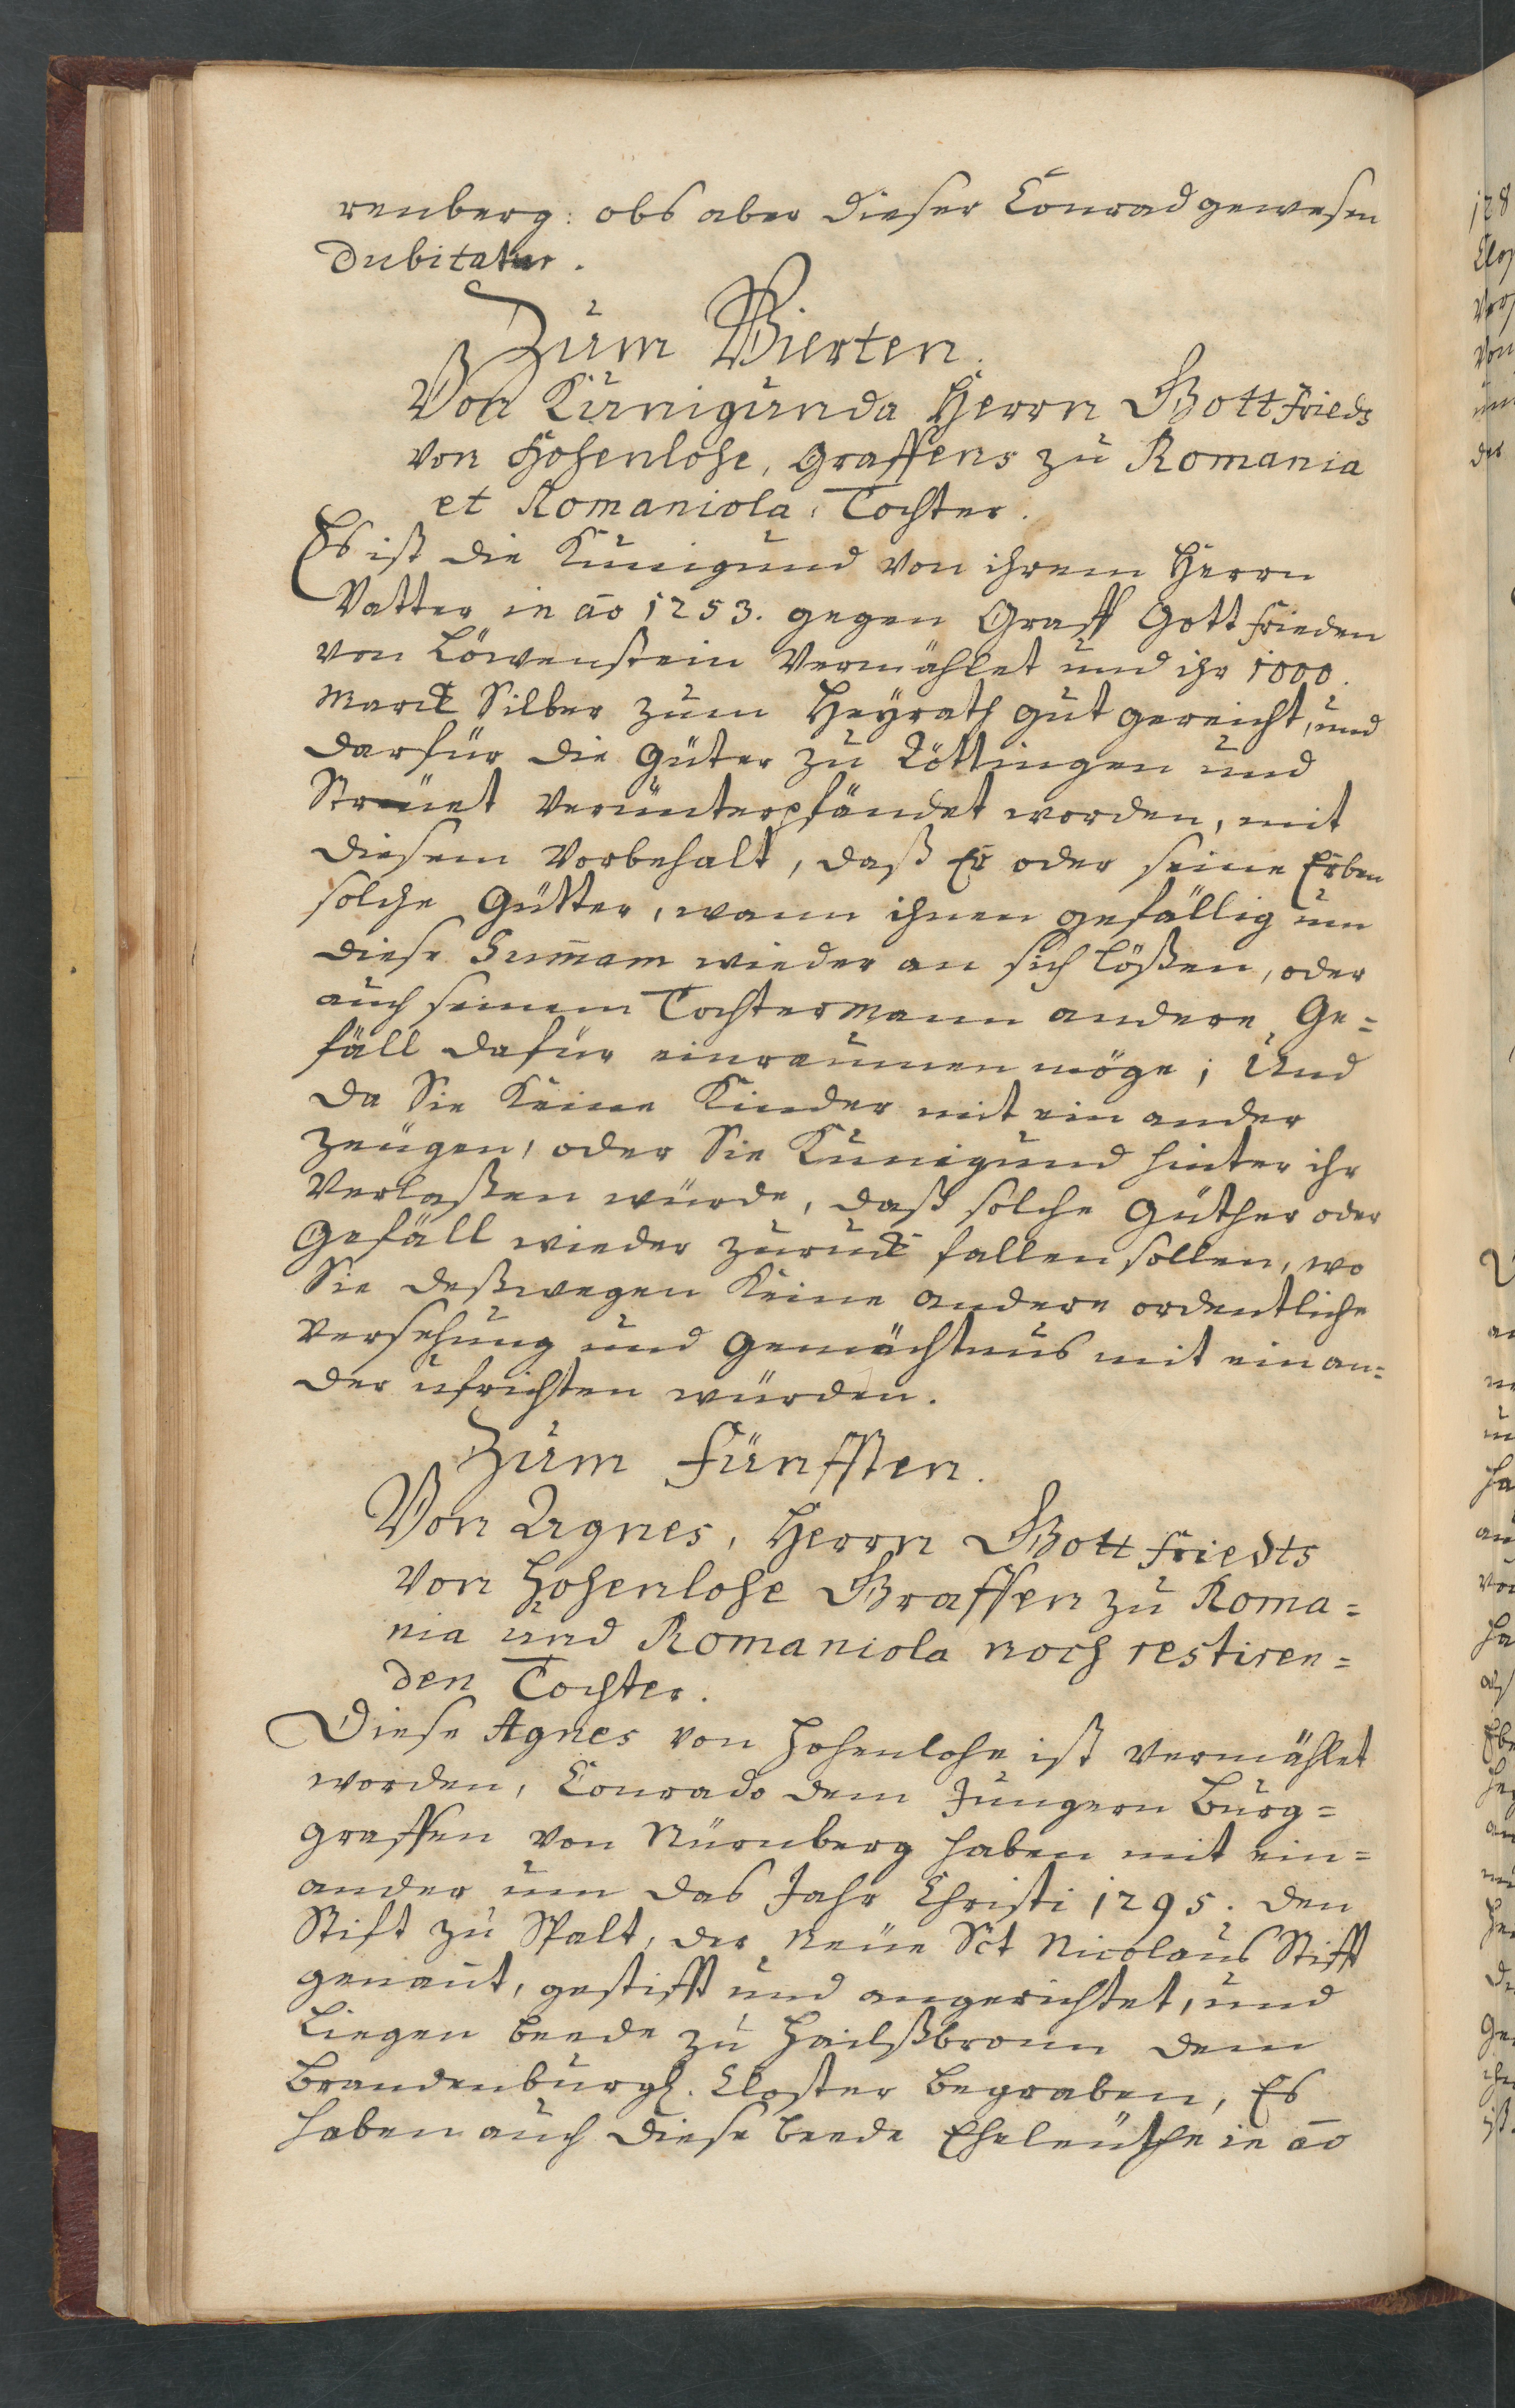 renberg: obs aber dieser Conrad gewesen
dubitatur.
Zum Vierten.
Von Kunigunda Herrn Gottfrieds
von Hohenlohe, Graffens zu Romania
et Romaniola, Tochter.
Es ist die Kunigund von ihrem Herrn
Vatter in ao 1253. gegen Graff Gottfrieden
von Löwenstein vermählet und ihr 1000.
Marck Silber zum Heyrath gut gereicht, und
darfür die Güter zu Röttingen und
verunterpfändet worden, mit
diesem Vorbehalt, daß Er oder seine Erben
solche Gütter, wann ihnen gefällig um
diese Sum̄am wieder an sich lößen, oder
auch seinem Tochtermann andere Ge=
fäll dafür einraumen möge; Und
da Sie keine Kinder mit ein ander
zeugen, oder Sie Kunigund hinter ihr
verlaßen würde, daß solche Güther oder
Gefäll wieder zuruck fallen sollen, wo
Sie deßwegen keine andere ordentliche
Versehung und Gemächtnus mit einan=
der ufrichten würden.
Zum Fünfften.
Von Agnes, Herrn Gottfriedts
von Hohenlohe Graffen zu Roma=
nia und Romaniola noch restiren=
den Tochter.
Diese Agnes von Hohenlohe ist vermählet
worden, Conrado dem Jüngern Burg=
graffen von Nürnberg haben mit ein=
ander um das Jahr Christi 1295. den
Stift zu Spalt, der Neüe Sct Nicolaus Stifft
genan̄t, gestifft und angerichtet, und
Liegen beede zu Hailßbronn dem
Brandenburgl. Closter begraben, Es
haben auch diese beede Eheleüthe in ao